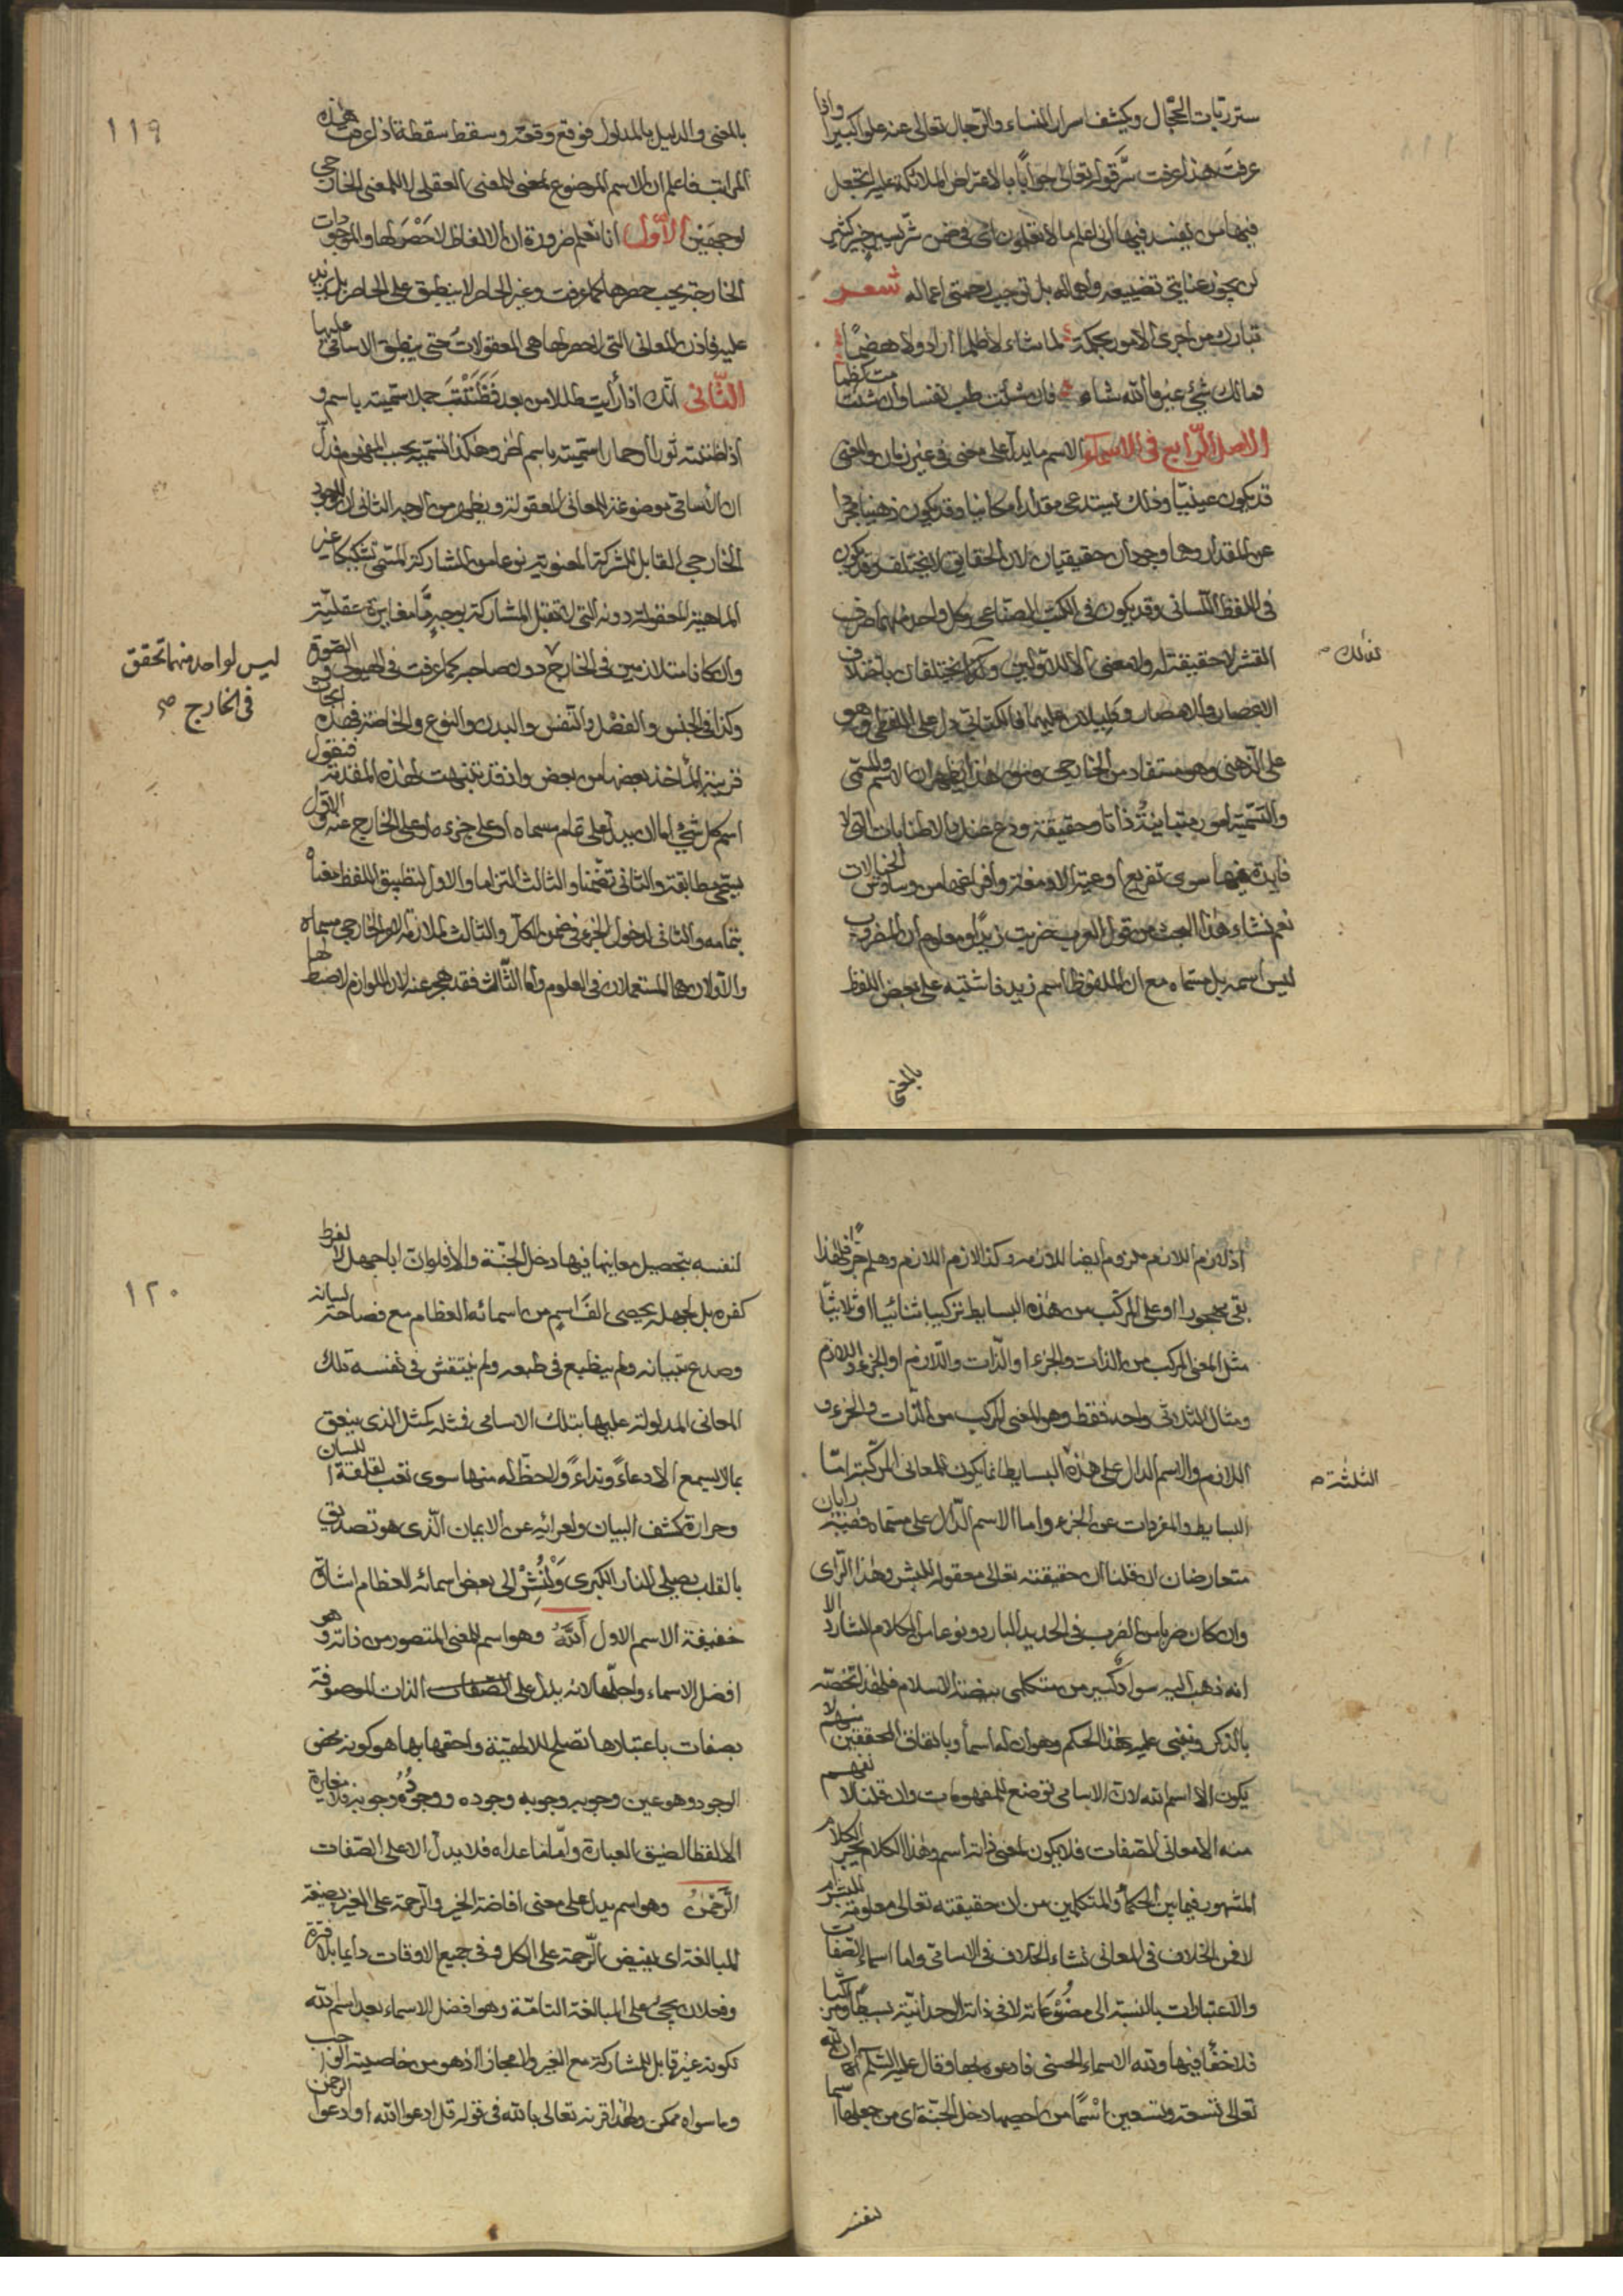 ستر ربات الحجال ويكشف اسرار النساء والرجال تعالى عنه علوا كبيرا واذا
عرفت هذا عرفت سر قوله تعالى جوابا بالاعتراض الملائكة عليه اتجعل
فيها من يفسد فيها انى اعلم ما لا تعلمون اى فى ضمن شر يسير خير كثير
لن يجوز عنايتى تضييعه واهماله بل توجب رحمتى اعماله شعر
تبارك من اجرى الامور بحكمة كما شاء لا ظلما اراد ولا هضما
فمالك شئ غير ما الله شاء فان شئت طب نفسا وان شئت مت كظما
الاصل الرابع فى الاسماء الاسم ما يدل على معنى فى غير زمان والمعنى
قد يكون عينيا وذلك يستدعى مقدارا مكانيا وقد يكون ذهنيا مجردا
عن المقدار وهما وجودان حقيقيان لان الحقايق لا يختلف وقد يكون
فى اللفظ اللسانى وقد يكون فى الكتب الصناعى وكل واحد منهما ظرف
القشر لا حقيقة له ولا معنى الا للاولين ولذلك يختلفان باختلاف
الاعصار والامصار ويتبدلان عليهما فالكتابى دل على اللفظى وهو
على الذهنى وهو مستفاد من الخارجى ومن هذا يظهر ان الاسم والمسمى
والتسمية امور متباينة ذاتا وحقيقة ودع عنك الاطنابات التى لا
فايدة فيها سوى تفريغ اوعية الادمغة وافراغها من وساوس الخيالات
نعم نشاء هذا البحث من قول العرب ضربت زيدا ومعلوم ان المضروب
ليس اسمه بل مسماه مع ان الملفوظ اسم زيد فاشتبه على بعض اللفظ
كذلك
بالمعنى
١١٩
بالمعنى والدليل بالمدلول فوقع وقعة وسقط سقطة اذا عرفت هذه
المراتب فاعلم ان الاسم الموضوع لمعنى للمعنى العقلى لا للمعنى الخارجى
لوجهين الاول انا نعلم ضرورة ان الالفاظ لا حصر لها والموجودات
الخارجية يجب حصرها كما عرفت وغير الحاصر لا ينطبق على الحاصر بل يزيد
عليه فاذن المعانى التى لا حصر لها هى المعقولات حتى ينطبق الاسامى عليها
الثانى انك اذا رأيت طللا من بعد فظننته جبلا سميته باسم و
اذا ظننته ثورا او حمارا سميته باسم اخر وهكذا التسمية بحسب المفهوم فدل
ان الاسامى موضوعة للمعانى المعقولة ويظهر من الوجه الثانى ان الوجود
الخارجى القابل للشركة المعنوية نوعا من المشاركة المسمى تشكيكا غير
الماهية المعقولة دونه التى لا تقبل المشاركة بوجه ما مغايرة عقلية
وان كانا متلازمين فى الخارج دون صاحبه كما عرفت فى الهيولى والصورة
وكذا فى الجنس والفصل والنفس والبدن والنوع والخاصة فهذه ابحاث
قريبة المأخذ بعضها من بعض واذ قد تنبهت لهذه المقدمة فنقول
اسم كل شئ اما ان يدل على تمام مسماه او على جزءه او على الخارج عنه والاول
يسمى مطابقة والثانى تضمنا والثالث التزاما والاول لتطبيق اللفظ معناه
بتمامه والثانى لدخول الجزء فى ضمن الكل والثالث لملازمة الامر الخارجى مسماه
والاولان هما المستعملان فى العلوم واما الثالث فقد هجر عنه لان اللوازم لا ضبط لها
ليس لواحد منهما تحقق
فى الخارج صح
اذ لازم اللازم ملزوم ايضا للازمه وكذا لازم اللازم وهلم جرا فلهذا
بقى مهجورا او على المركب من هذه البسايط تركيبا ثنائيا او ثلاثيا
مثل المعنى المركب من الذات والجزء او الذات واللازم او الجزء واللازم
ومثال الثلاثى واحد فقط وهو المعنى المركب من الذات والجزء و
اللازم والاسم الدال على هذه البسايط انما يكون للمعانى المركبة اما
البسايط والمفردات عن الجزء واما الاسم الدال على مسماه ففيه رايان
متعارضان ان قلنا ان حقيقته تعالى معقولة للبشر وهذا الراى
وان كان ضربا من الضرب فى الحديد البارد ونوعا من الكلام الشارد الا
انه ذهب اليه سواد كبير من متكلمى بيضة الاسلام فلهذا نخصه
بالذكر ونبنى عليه هذا الحكم وهو ان له اسما وباتفاق المحققين منهم لا
يكون الا اسم الله لان الاسامى توضع للمفهومات وان قلنا لا نفهم
منه الا معانى الصفات فلا يكون لمعنى ذاته اسم وهذا الكلام يجر الكلام
المشهور فيما بين الحكماء والمتكلمين من ان حقيقته تعالى معلومة للبشر ام
لا فمن الخلاف فى المعانى نشاء الخلاف فى الاسامى واما اسماء الصفات
والاعتبارات بالنسبة الى مصنوعاته لا فى ذاته الوحدانية بسيطا ومركبا
فلا خفاء فيها ولله الاسماء الحسنى فادعوه بها وقال عليه السلم ان لله
تعالى تسعة وتسعين اسما من احصيها دخل الجنة اى من جعلها سما
الثلثة
لنفسه
١٢٠
لنفسه بتحصيل معانيها فيها دخل الجنة والا فلو ان ابا جهل لا لفرط
كفره بل لجهله يحصى الف اسم من اسمائه العظام مع فصاحة لسانه
وصدع تبيانه ولم ينطبع فى طبعه ولم ينتقش فى نفسه تلك
المعانى المدلولة عليها بتلك الاسامى فمثله كمثل الذى ينعق
بما لا يسمع الا دعاء ونداء ولا حظ له منها سوى تعب لقلقة اللسان
وحرارة كشف البيان ولعرائه عن الايمان الذى هو تصديق
بالقلب يصلى النار الكبرى ولنشر الى بعض اسمائه العظام اشارة
خفيفة الاسم الاول الله وهو اسم للمعنى المتصور من ذاته وهو
افضل الاسماء واجلها لانه يدل على الصفات الذات الموصوفة
بصفات باعتبارها تصلح للالهية واحقها بها هو كونه محض
الوجود وهو عين وجوبه وجوبه وجوده ووجوده وجوبه فلا مغايرة
الا لفظا لضيق العبارة واما ما عداه فلا يدل الا على الصفات
الرحمن وهو اسم يدل على معنى افاضة الخير والرحمة على الغير بصيغة
المبالغة اى يفيض الرحمة على الكل وفى جميع الاوقات دايما بلا فترة
وفعلان يجئ على المبالغة التامة وهو افضل الاسماء بعد اسم الله
لكونه غير قابل للمشاركة مع الغير ولا مجازا اذ هو من خاصية الواجب
وما سواه ممكن ولهذا قرنه تعالى بالله فى قوله قل ادعوا الله او ادعوا الرحمن